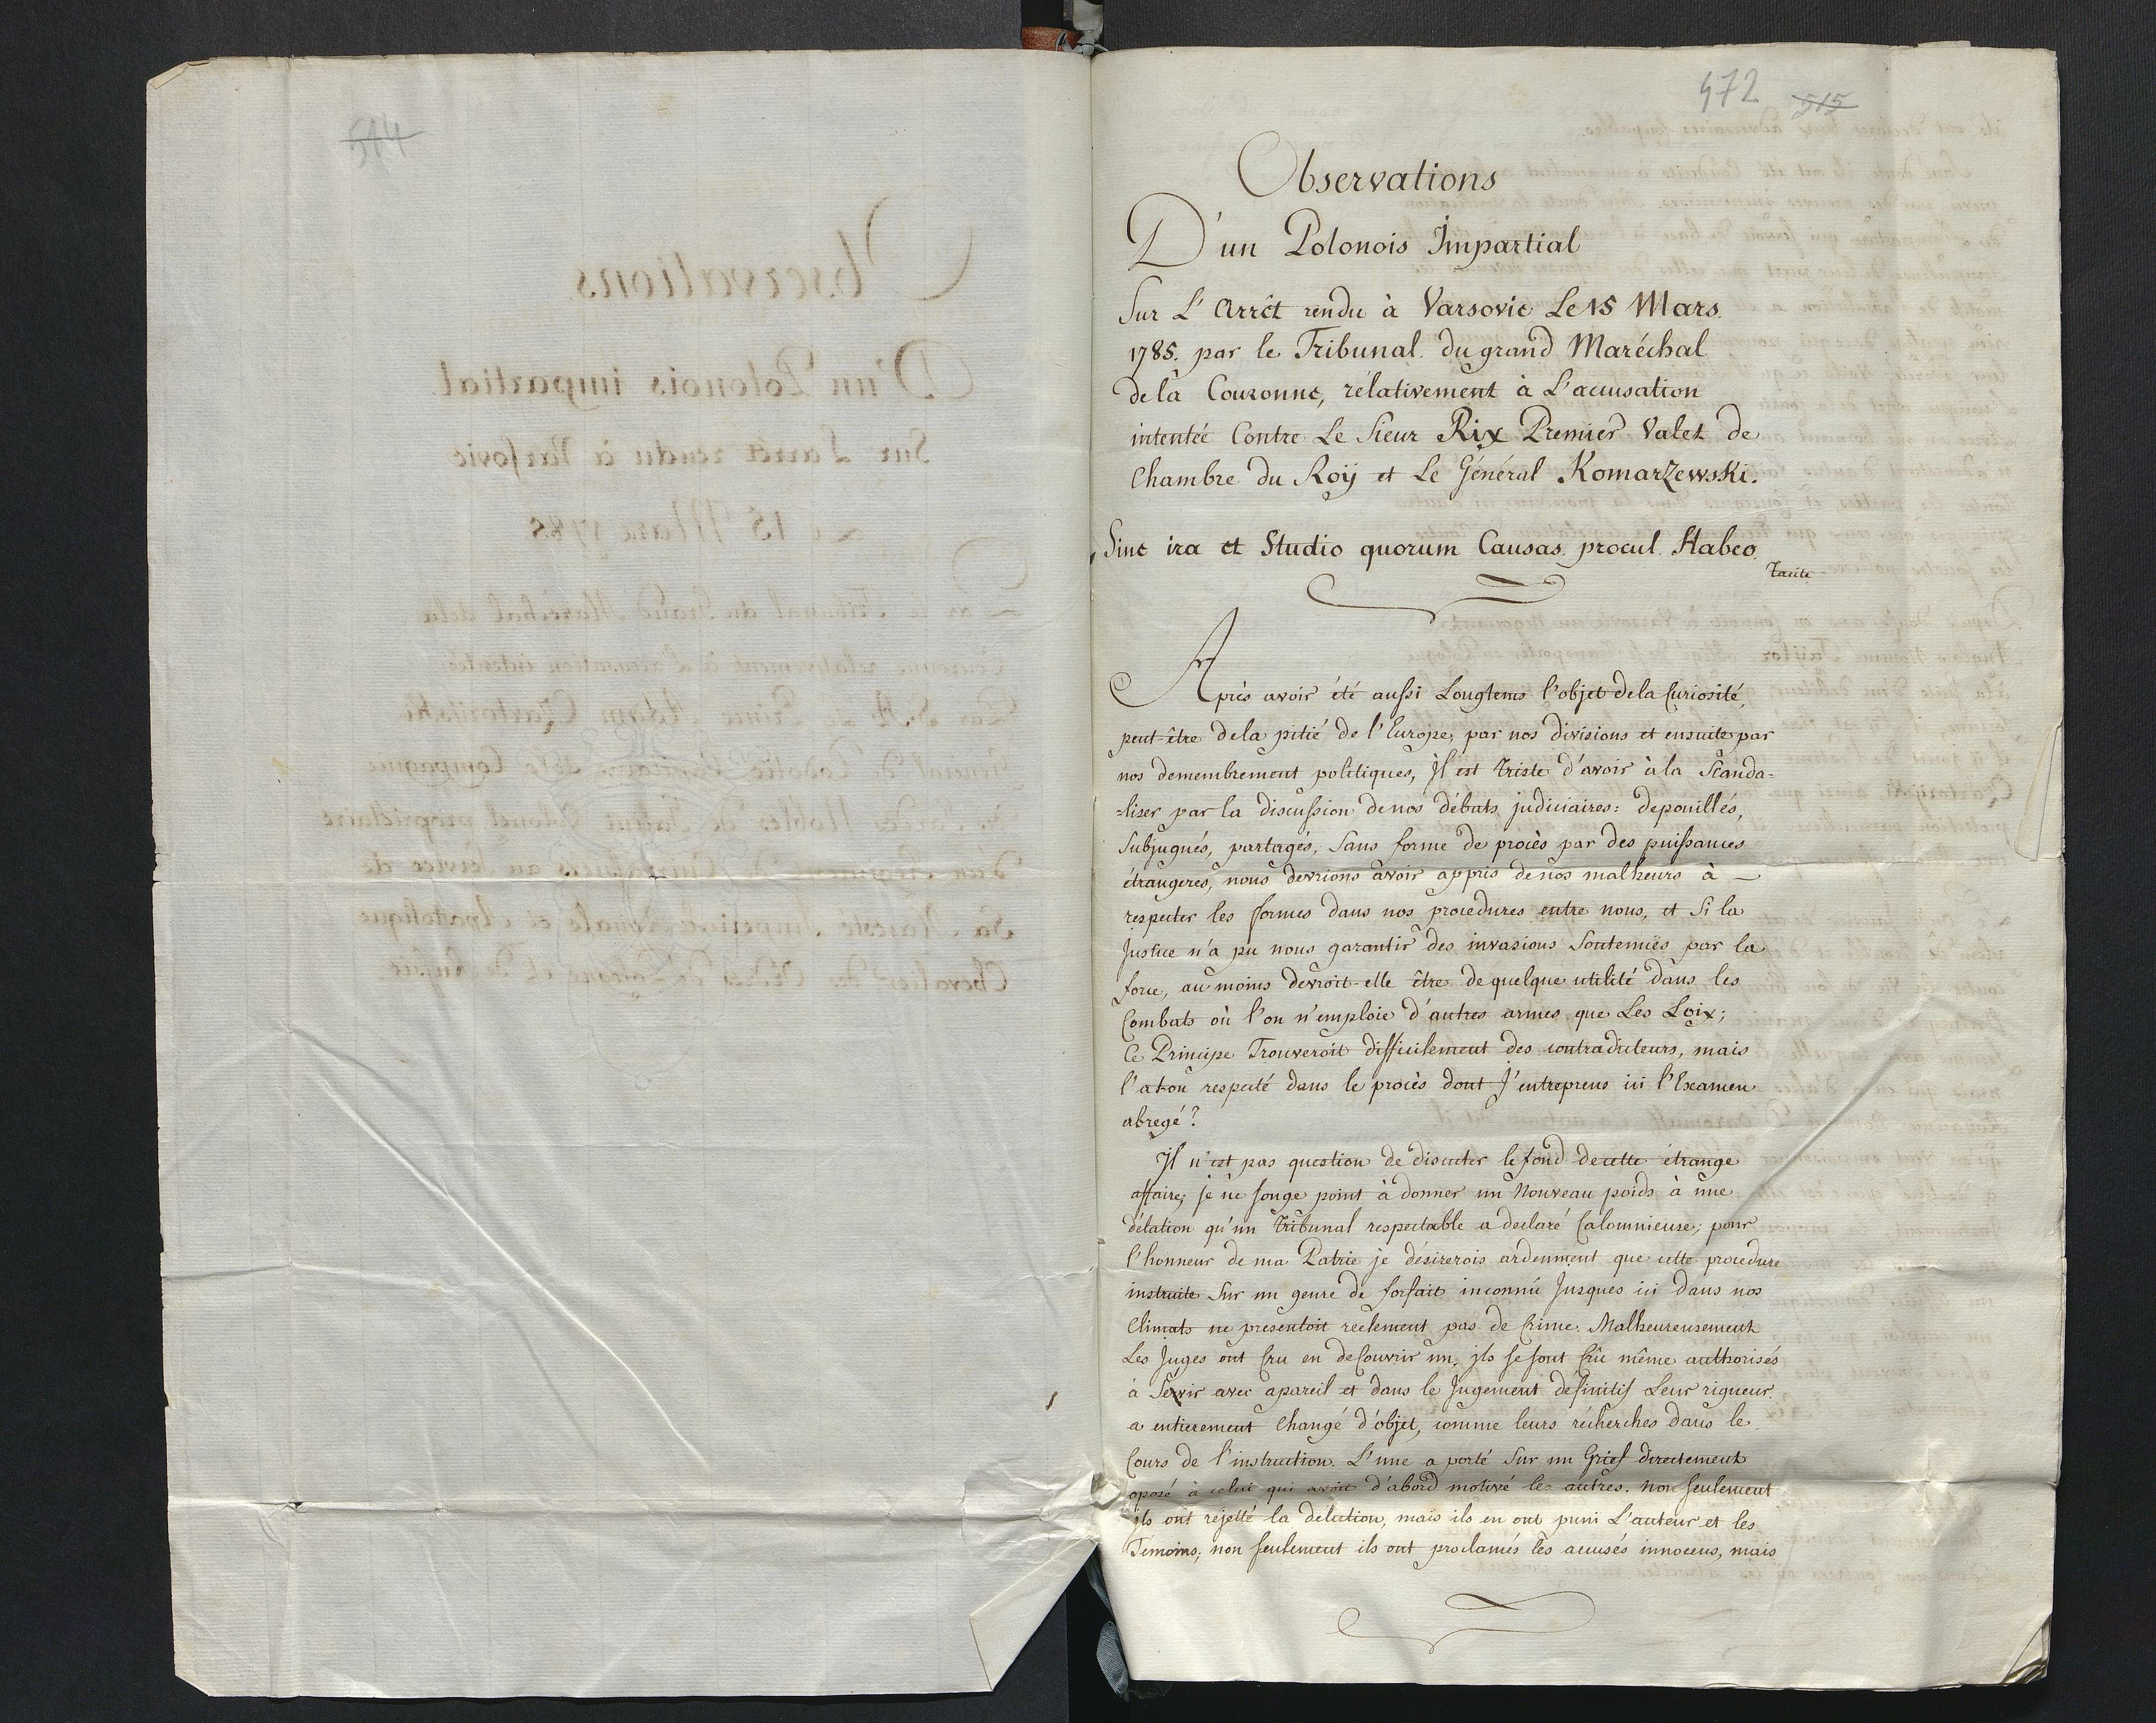 514
472 515
Observations
D'un Polonois Impartial
Sur L'Arrêt rendu à Varsovie Le 15 Mars.
1785. par le Tribunal du grand Maréchal
de là Couronne, rélativement à L'accusation
intentée Contre Le Sieur Rix Premier Valet de
Chambre du Roÿ et Le Général Komarzewski.
Sine ira et Studio quorum Causas procul Habeo.
Tacite
Après avoir été aussi Longtems l'objet de la Curiosité,
peut-être de la pitié de l'Europe, par nos divisions et ensuite par
nos demembrement politiques, Il est triste d'avoir à la Scanda-
-liser par la discussion de nos débats judiciaires: depouillés,
Subjugués, partagés, Sans forme de procès par des puissances
étrangeres, nous devrions avoir appris de nos malheurs à
respecter les formes dans nos procedures entre nous, et Si la
Justice n'a pu nous garantir des invasions Soutenües par la
force, au moins devroit-elle être de quelque utilité dans les
Combats où l'on n'emploie d'autres armes que Les Loix;
Ce Principe Trouveroit difficilement des contradicteurs, mais
l'at-on respecté dans le procès dont J'entreprens ici l'Examen
abregé?
Il n'est pas question de discuter le fond de cette étrange
affaire, je ne songe point à donner un Nouveau poids à une
délation qu'un Tribunal respectable a declaré Calomnieuse; pour
l'honneur de ma Patrie je désirerois ardemment que cette procedure
instruite Sur un genre de forfait inconnu Jusques ici dans nos
Climats ne presentoit réelement pas de Crime. Malheureusement
Les Juges ont Cru en deCouvrir un, ils se sont Crû même authorisés
à Sévir avec apareil et dans le Jugement definitif Leur rigueur
a entierement Changé d'objet, comme leurs récherches dans le
Cours de l'instruction. L'une a porté Sur un Grief directement
oposé à celui qui avoit d'abord motivé les autres. non seulement
ils ont réjetté la delation, mais ils en ont puni L'auteur et les
Temoins; non seulement ils ont proclamés les accusés innocens, mais